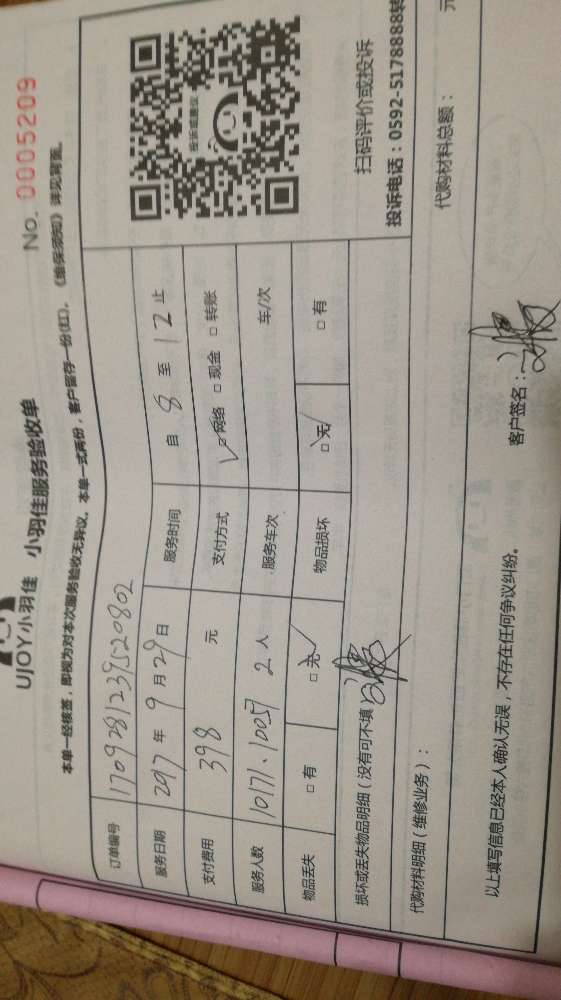 UJOY小羽佳 小羽佳服务验收单 No. 0005209
本单一经核签，即视为对本次服务验收无异议。本单一式两份，客户留存一份(红)。《维保须知》详见背面。
订单编号 1709281239520802
服务日期 2017 年 9 月 29 日 服务时间 自 8 至 12 止
支付费用 398 元 支付方式 ☑网络 □现金 □转账
服务人数 10171、10059 2 人 服务车次 车/次
物品丢失 □有 ☑无 物品损坏 ☑无 □有
损坏或丢失物品明细（没有可不填）
投诉或建议
扫码评价或投诉
投诉电话：0592-5178888转
代购材料明细（维修业务）： 代购材料总额： 元
以上填写信息已经本人确认无误，不存在任何争议纠纷。
客户签名：